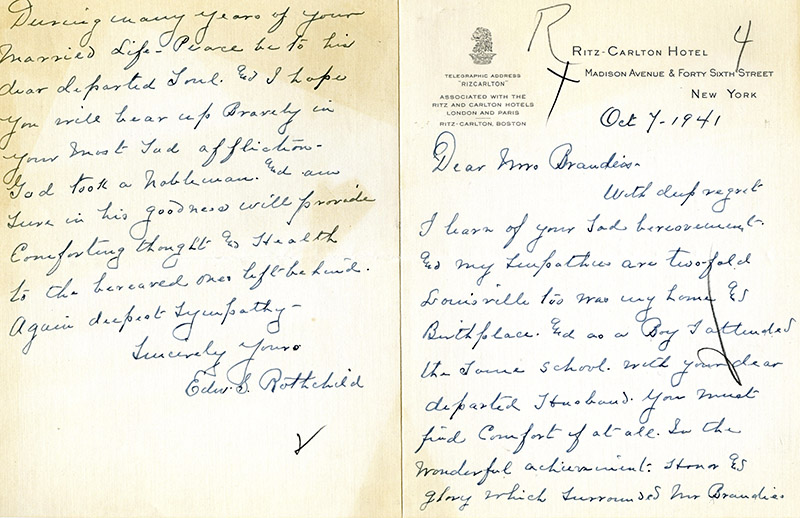 R
4
RITZ-CARLTON HOTEL
MADISON AVENUE & FORTY SIXTH STREET
NEW YORK
TELEGRAPHIC ADDRESS
"RIZCARLTON"
ASSOCIATED WITH THE
RITZ AND CARLTON HOTELS
LONDON AND PARIS
RITZ-CARLTON, BOSTON
Oct 7-1941
Dear Mrs Brandeis-
With deep regret
I learn of your Sad bereavement.
& my Simpathies are two-fold
Louisville too was my home &
Birthplace. & as a Boy I attended
the Same School. with your dear
departed Husband. You must
find Comfort if at all. In the
Wonderful achievement. Honor &
glory which Surrounded Mr Brandeis
During many years of your
Married Life- Peace be to his
dear departed Soul. & I hope
You will bear up Bravely in
your Most Sad affliction-
God took a Nobleman. & am
Sure in his goodness will provide
Comforting thought & Health
to the bereaved ones left behind.
Again deepest Sympathy-
Sincerely Yours
Edw. S. Rothchild